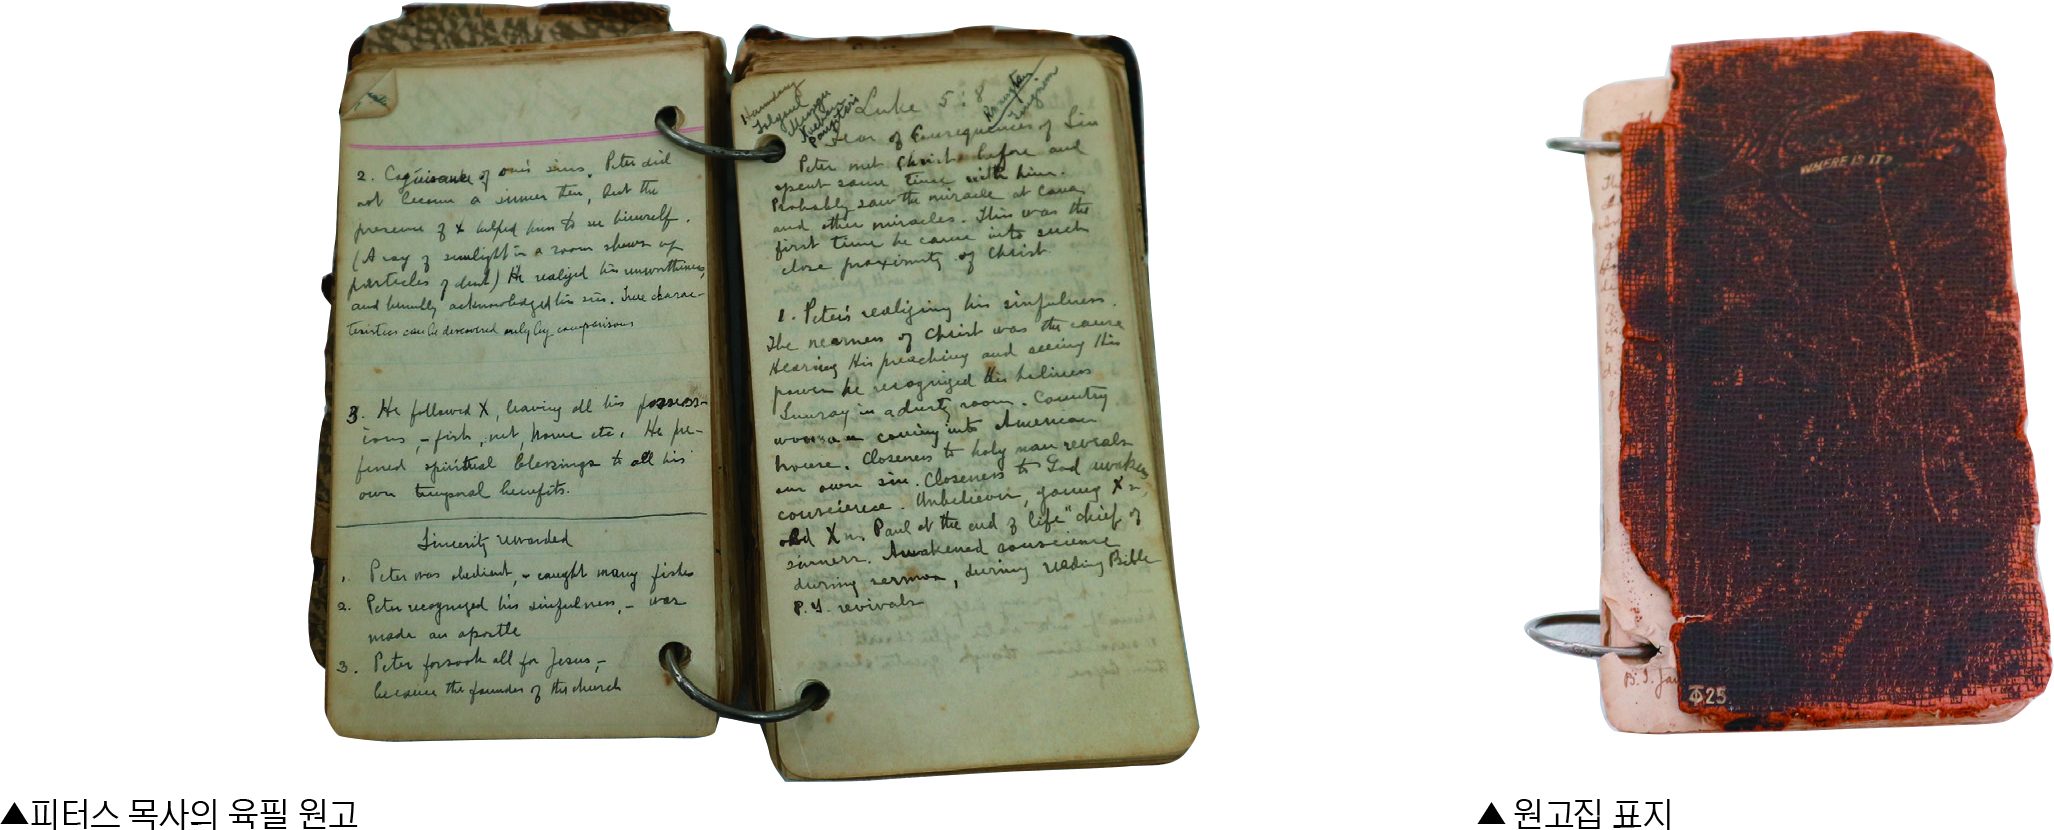 2. Cognisance of one's sins. Peter did
not become a sinner then, but the
presence of X helped him to see himself.
(A ray of sunlight in a room shows up
particles of dust) He realized his unworthiness,
and humbly acknowledged his sin. True charac-
teristics can be discovered only by comparisons
3. He followed X, leaving all his possess-
ions, - fish, net, home etc. He pre-
ferred spiritual blessings to all his
own temporal benefits.
Sincerity rewarded
1. Peter was obedient, - caught many fishes
2. Peter recognized his sinfulness, - was
made an apostle
3. Peter forsook all for Jesus, -
became the founder of the church
Luke 5:8
Fear of Consequences of Sin
Peter met Christ before and
spent some time with him.
Probably saw the miracle at Cana
and other miracles. This was the
first time he came into such
close proximity of Christ
1. Peter's realizing his sinfulness.
The nearness of Christ was the cause
Hearing His preaching and seeing His
power he recognized His holiness
in a dusty room. Country
woman coming into American
house. Closeness to holy man reveals
our own sin. Closeness to God awakens
conscience. Unbeliever, young Xn,
old Xn. Paul at the end of life "chief of
sinners. Awakened conscience
during sermon, during reading Bible
P.Y. revivals
WHERE IS IT?
25
▲피터스 목사의 육필 원고
▲ 원고집 표지